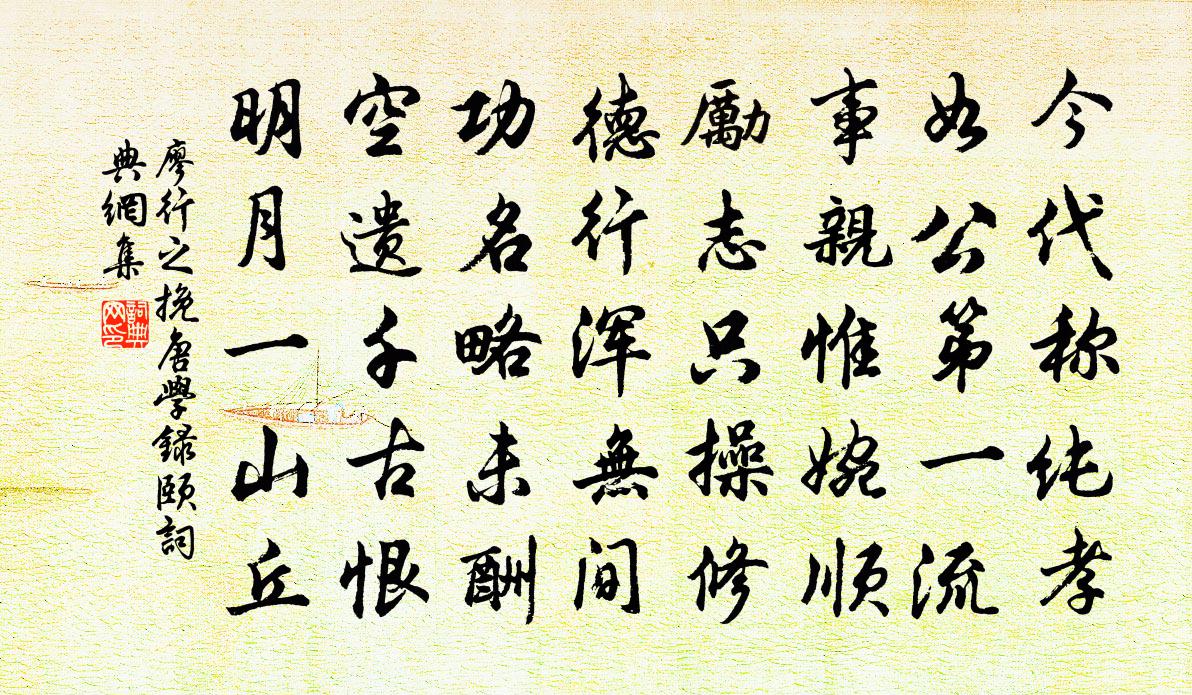 今代称纯孝
如公第一流
事親惟婉顺
勵志只操修
德行浑無间
功名略未酬
空遗千古恨
明月一山丘
廖行之挽唐學録颐詞
典網集
詞典
网印